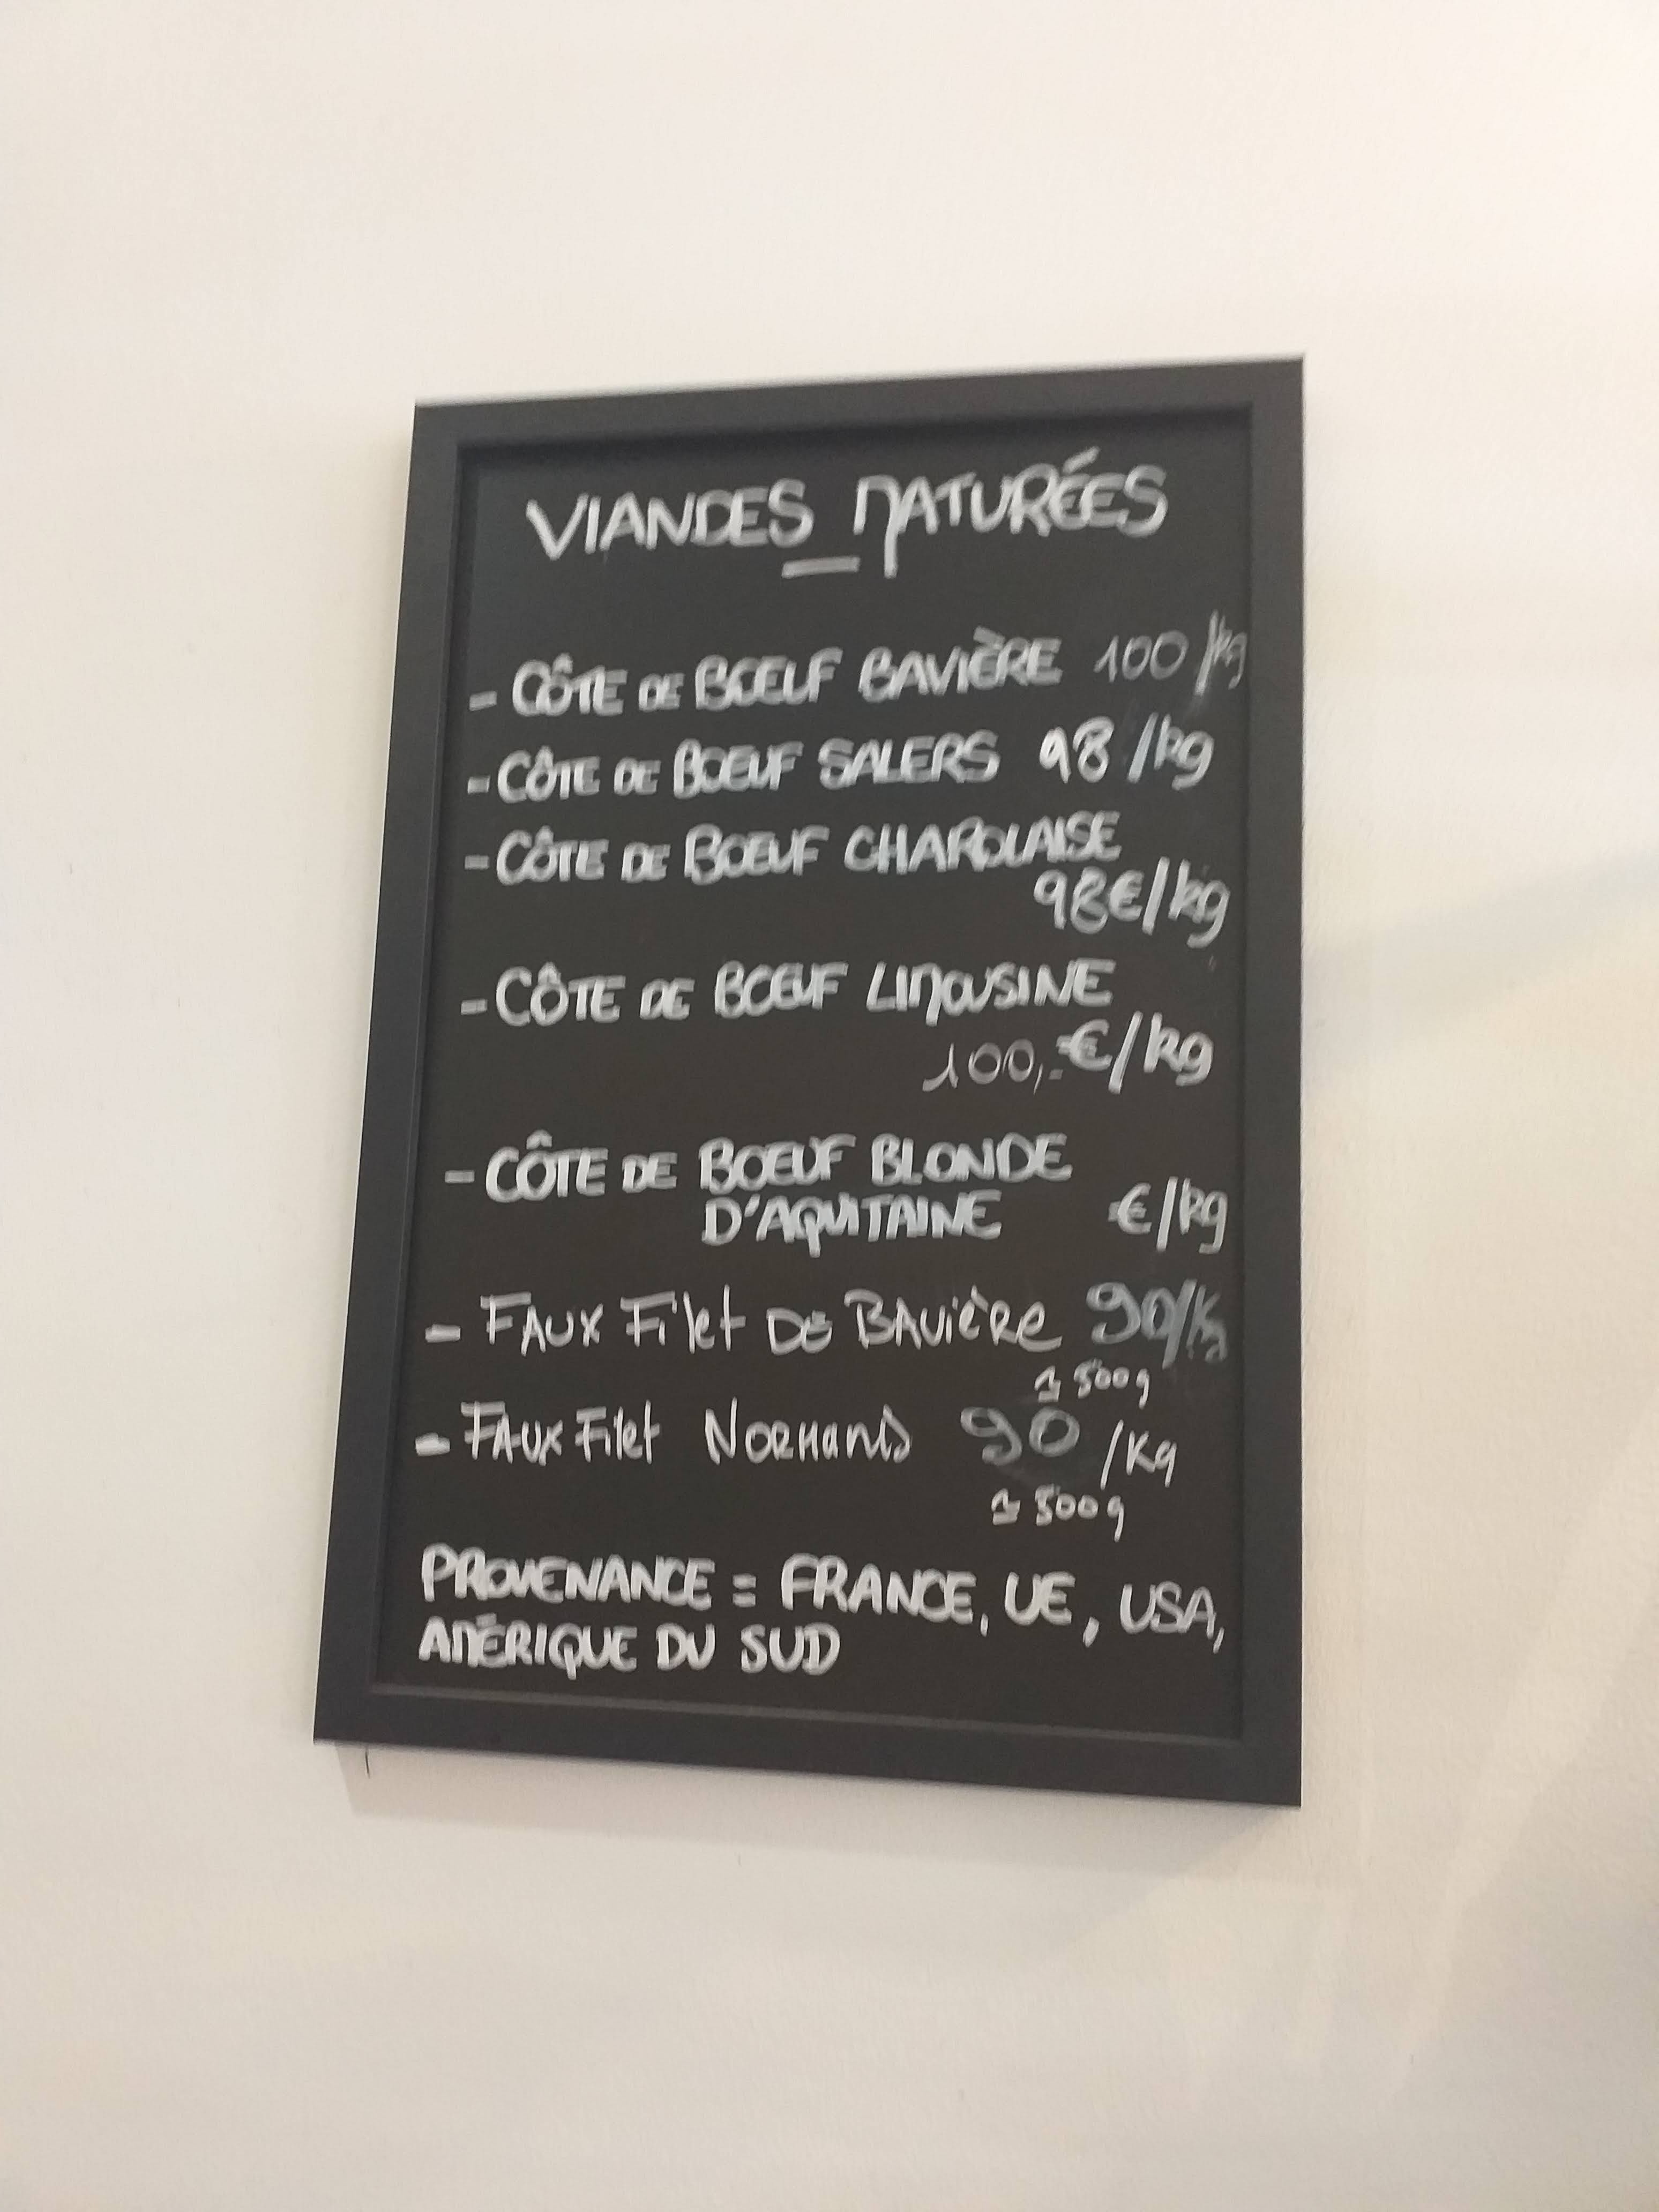 VIANDES MATURÉES
- CÔTE DE BŒUF BAVIÈRE 100 /kg
- CÔTE DE BŒUF SALERS 98 /kg
- CÔTE DE BŒUF CHAROLAISE
98€/kg
- CÔTE DE BŒUF LIMOUSINE
100,-€/kg
- CÔTE DE BŒUF BLONDE
D'AQUITAINE €/kg
- FAUX Filet DE BAVIÈRE 90/kg
≃ 500g
- FAUX Filet NORMAND 90 /Kg
≃ 500g
PROVENANCE = FRANCE, UE, USA,
AMÉRIQUE DU SUD